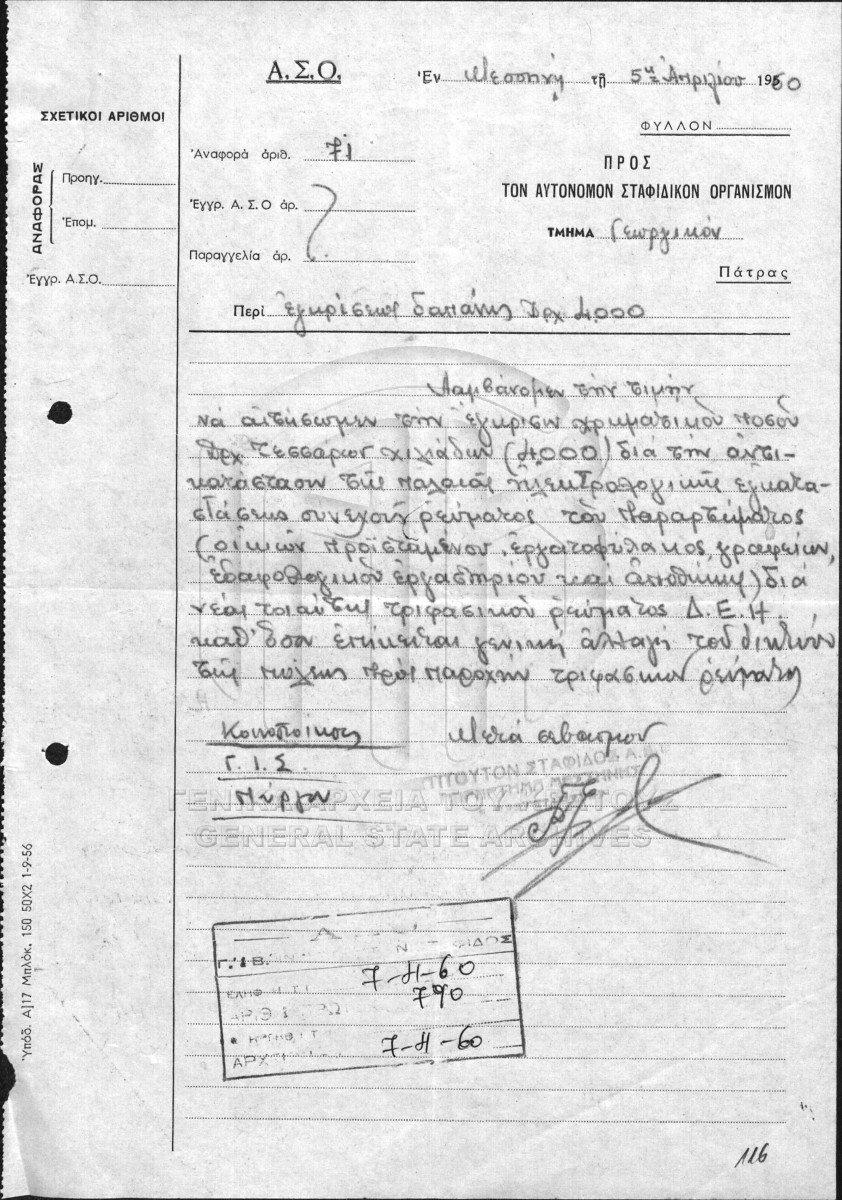 Α.Σ.Ο.
Ἐν Μεσσήνῃ τῇ 5η Ἀπριλίου 1960
ΣΧΕΤΙΚΟΙ ΑΡΙΘΜΟΙ
ΦΥΛΛΟΝ
ΑΝΑΦΟΡΑΣ
Προηγ.
Ἑπομ.
Ἐγγρ. Α.Σ.Ο.
Ἀναφορὰ ἀριθ. 71
Ἐγγρ. Α. Σ. Ο ἀρ.
Παραγγελία ἀρ.
ΠΡΟΣ
ΤΟΝ ΑΥΤΟΝΟΜΟΝ ΣΤΑΦΙΔΙΚΟΝ ΟΡΓΑΝΙΣΜΟΝ
ΤΜΗΜΑ Γεωργικόν
Πάτρας
Περὶ ἐγκρίσεως δαπάνης Δρχ 4.000
Λαμβάνομεν τὴν τιμὴν
νὰ αἰτήσωμεν τὴν ἔγκρισιν χρηματικοῦ ποσοῦ
Δρχ τεσσάρων χιλιάδων (4.000) διὰ τὴν ἀντι-
κατάστασιν τῆς παλαιᾶς ἠλεκτρολογικῆς ἐγκατα-
στάσεως συνεχοῦς ρεύματος τοῦ Παραρτήματος
(οἰκιῶν προϊσταμένου, ἐργατοφύλακος, γραφείων,
ἐδαφολογικοῦ ἐργαστηρίου καὶ ἀποθήκης) διὰ
νέας τοιαύτης τριφασικοῦ ρεύματος Δ.Ε.Η.
καθ' ὅσον ἐπίκειται γενικὴ ἀλλαγὴ τοῦ δικτύου
τῆς πόλεως πρὸς παροχὴν τριφασικοῦ ρεύματος
Κοινοποίησις
Μετὰ σεβασμοῦ
Γ. Ι. Σ.
Πύργον
ΣΤΑΦΙΔΟΣ
ΓΕΝΙΚΑ ΑΡΧΕΙΑ ΤΟΥ ΚΡΑΤΟΥΣ
GENERAL STATE ARCHIVES
7-4-60
790
7-4-60
Ὑπόδ. Α]17 Μπλόκ. 150 50Χ2 1-9-56
116